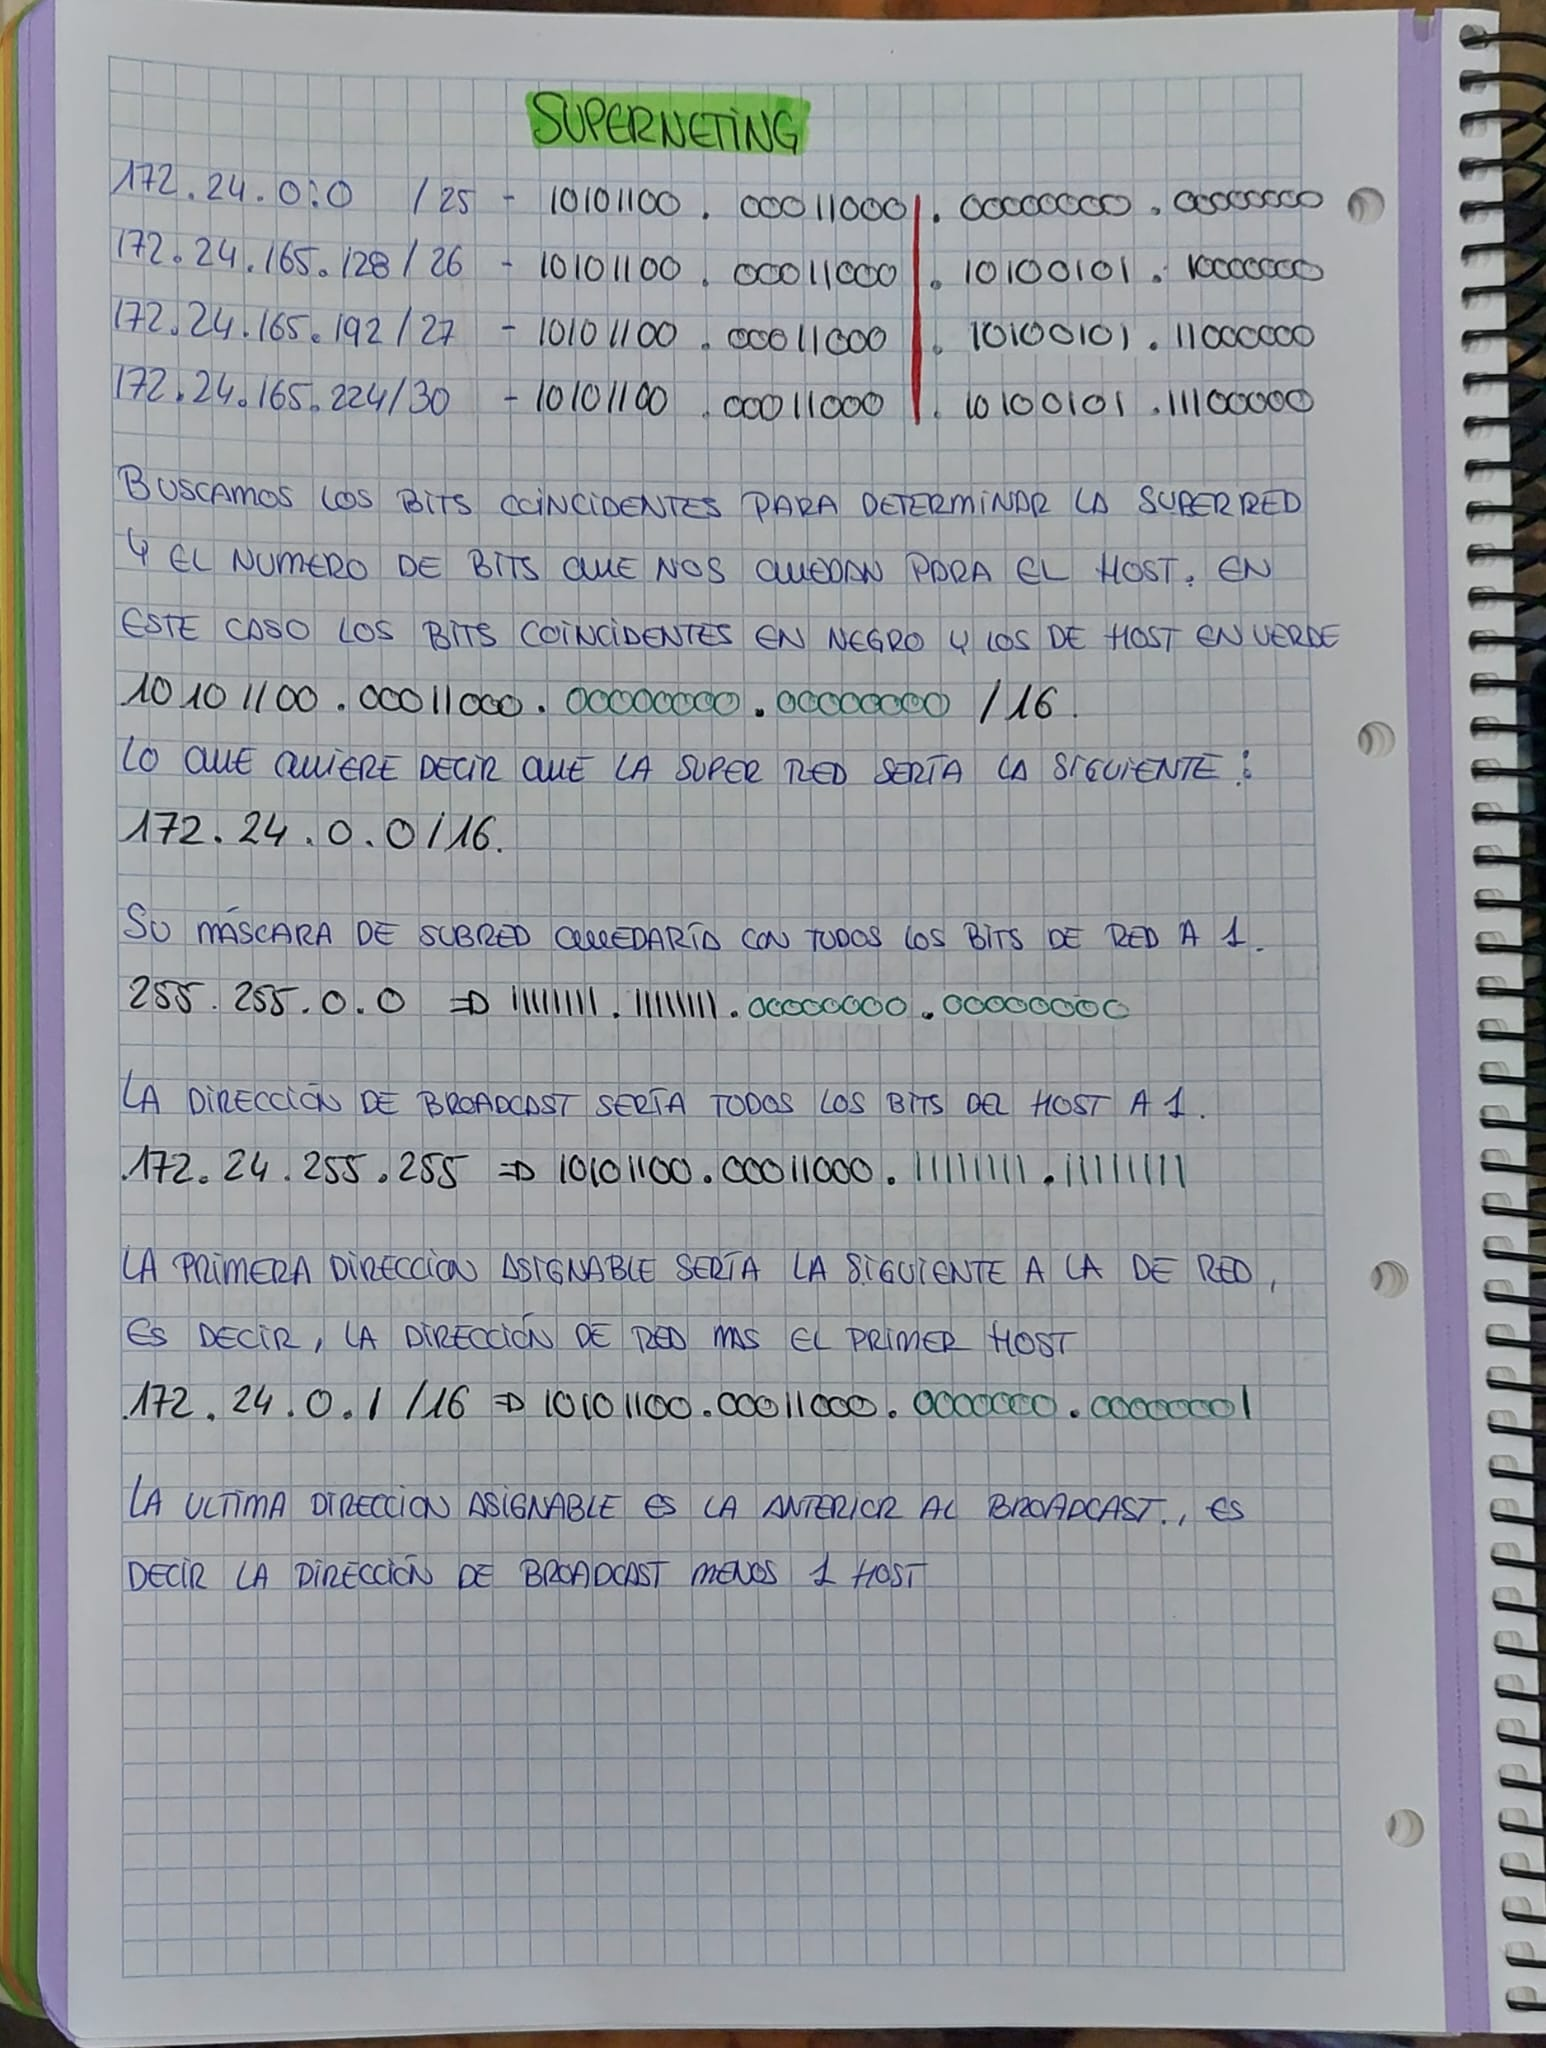 SUPERNETING
172.24.0.0 /25 - 10101100 . 00011000 . 00000000 . 00000000
172.24.165.128/26 - 10101100 . 00011000 . 10100101 . 10000000
172.24.165.192/27 - 10101100 . 00011000 . 10100101 . 11000000
172.24.165.224/30 - 10101100 . 00011000 . 10100101 . 11100000
BUSCAMOS LOS BITS COINCIDENTES PARA DETERMINAR LA SUPER RED
Y EL NUMERO DE BITS QUE NOS QUEDAN PARA EL HOST. EN
ESTE CASO LOS BITS COINCIDENTES EN NEGRO Y LOS DE HOST EN VERDE
10101100.00011000.00000000.00000000 /16.
LO QUE QUIERE DECIR QUE LA SUPER RED SERÍA LA SIGUIENTE:
172.24.0.0/16.
SU MÁSCARA DE SUBRED QUEDARÍA CON TODOS LOS BITS DE RED A 1.
255.255.0.0 => 11111111.11111111.00000000.00000000
LA DIRECCIÓN DE BROADCAST SERÍA TODOS LOS BITS DEL HOST A 1.
172.24.255.255 => 10101100.00011000.11111111.11111111
LA PRIMERA DIRECCION ASIGNABLE SERÍA LA SIGUIENTE A LA DE RED,
ES DECIR, LA DIRECCIÓN DE RED MAS EL PRIMER HOST
172.24.0.1/16 => 10101100.00011000.0000000.00000001
LA ULTIMA DIRECCION ASIGNABLE ES LA ANTERIOR AL BROADCAST., ES
DECIR LA DIRECCIÓN DE BROADCAST MENOS 1 HOST